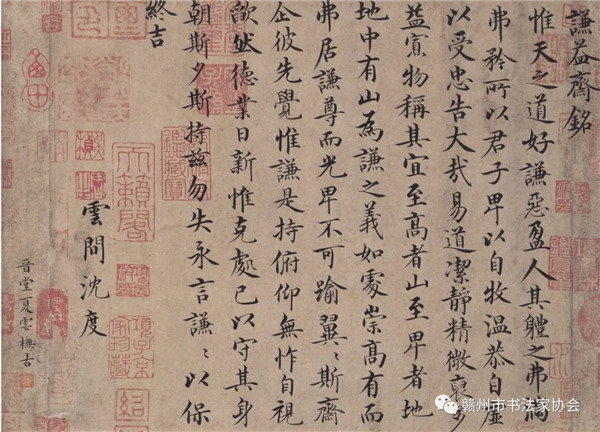 謙益齋銘
惟天之道好謙惡盈人其體之弗滿
弗矜所以君子卑以自牧溫恭自虛
以受忠告大哉易道潔靜精微裒多
益寡物稱其宜至高者山至卑者地
地中有山為謙之義如處崇高有而
弗居謙尊而光卑不可踰翼〻斯齋
企彼先覺惟謙是持俯仰無怍自視
欿然德業日新惟克處己以守其身
朝斯夕斯持茲勿失永言謙〻以保
終吉
雲間沈度
天籟閣
項子京家珍藏
晉堂夏雲橅古
赣州市书法家协会